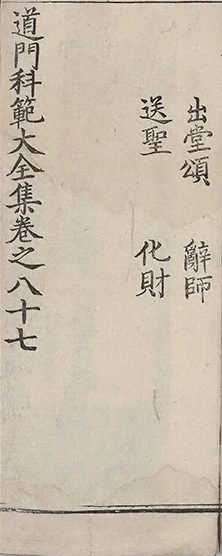 出堂頌　辭師
送聖　化財
道門科範大全集卷之八十七